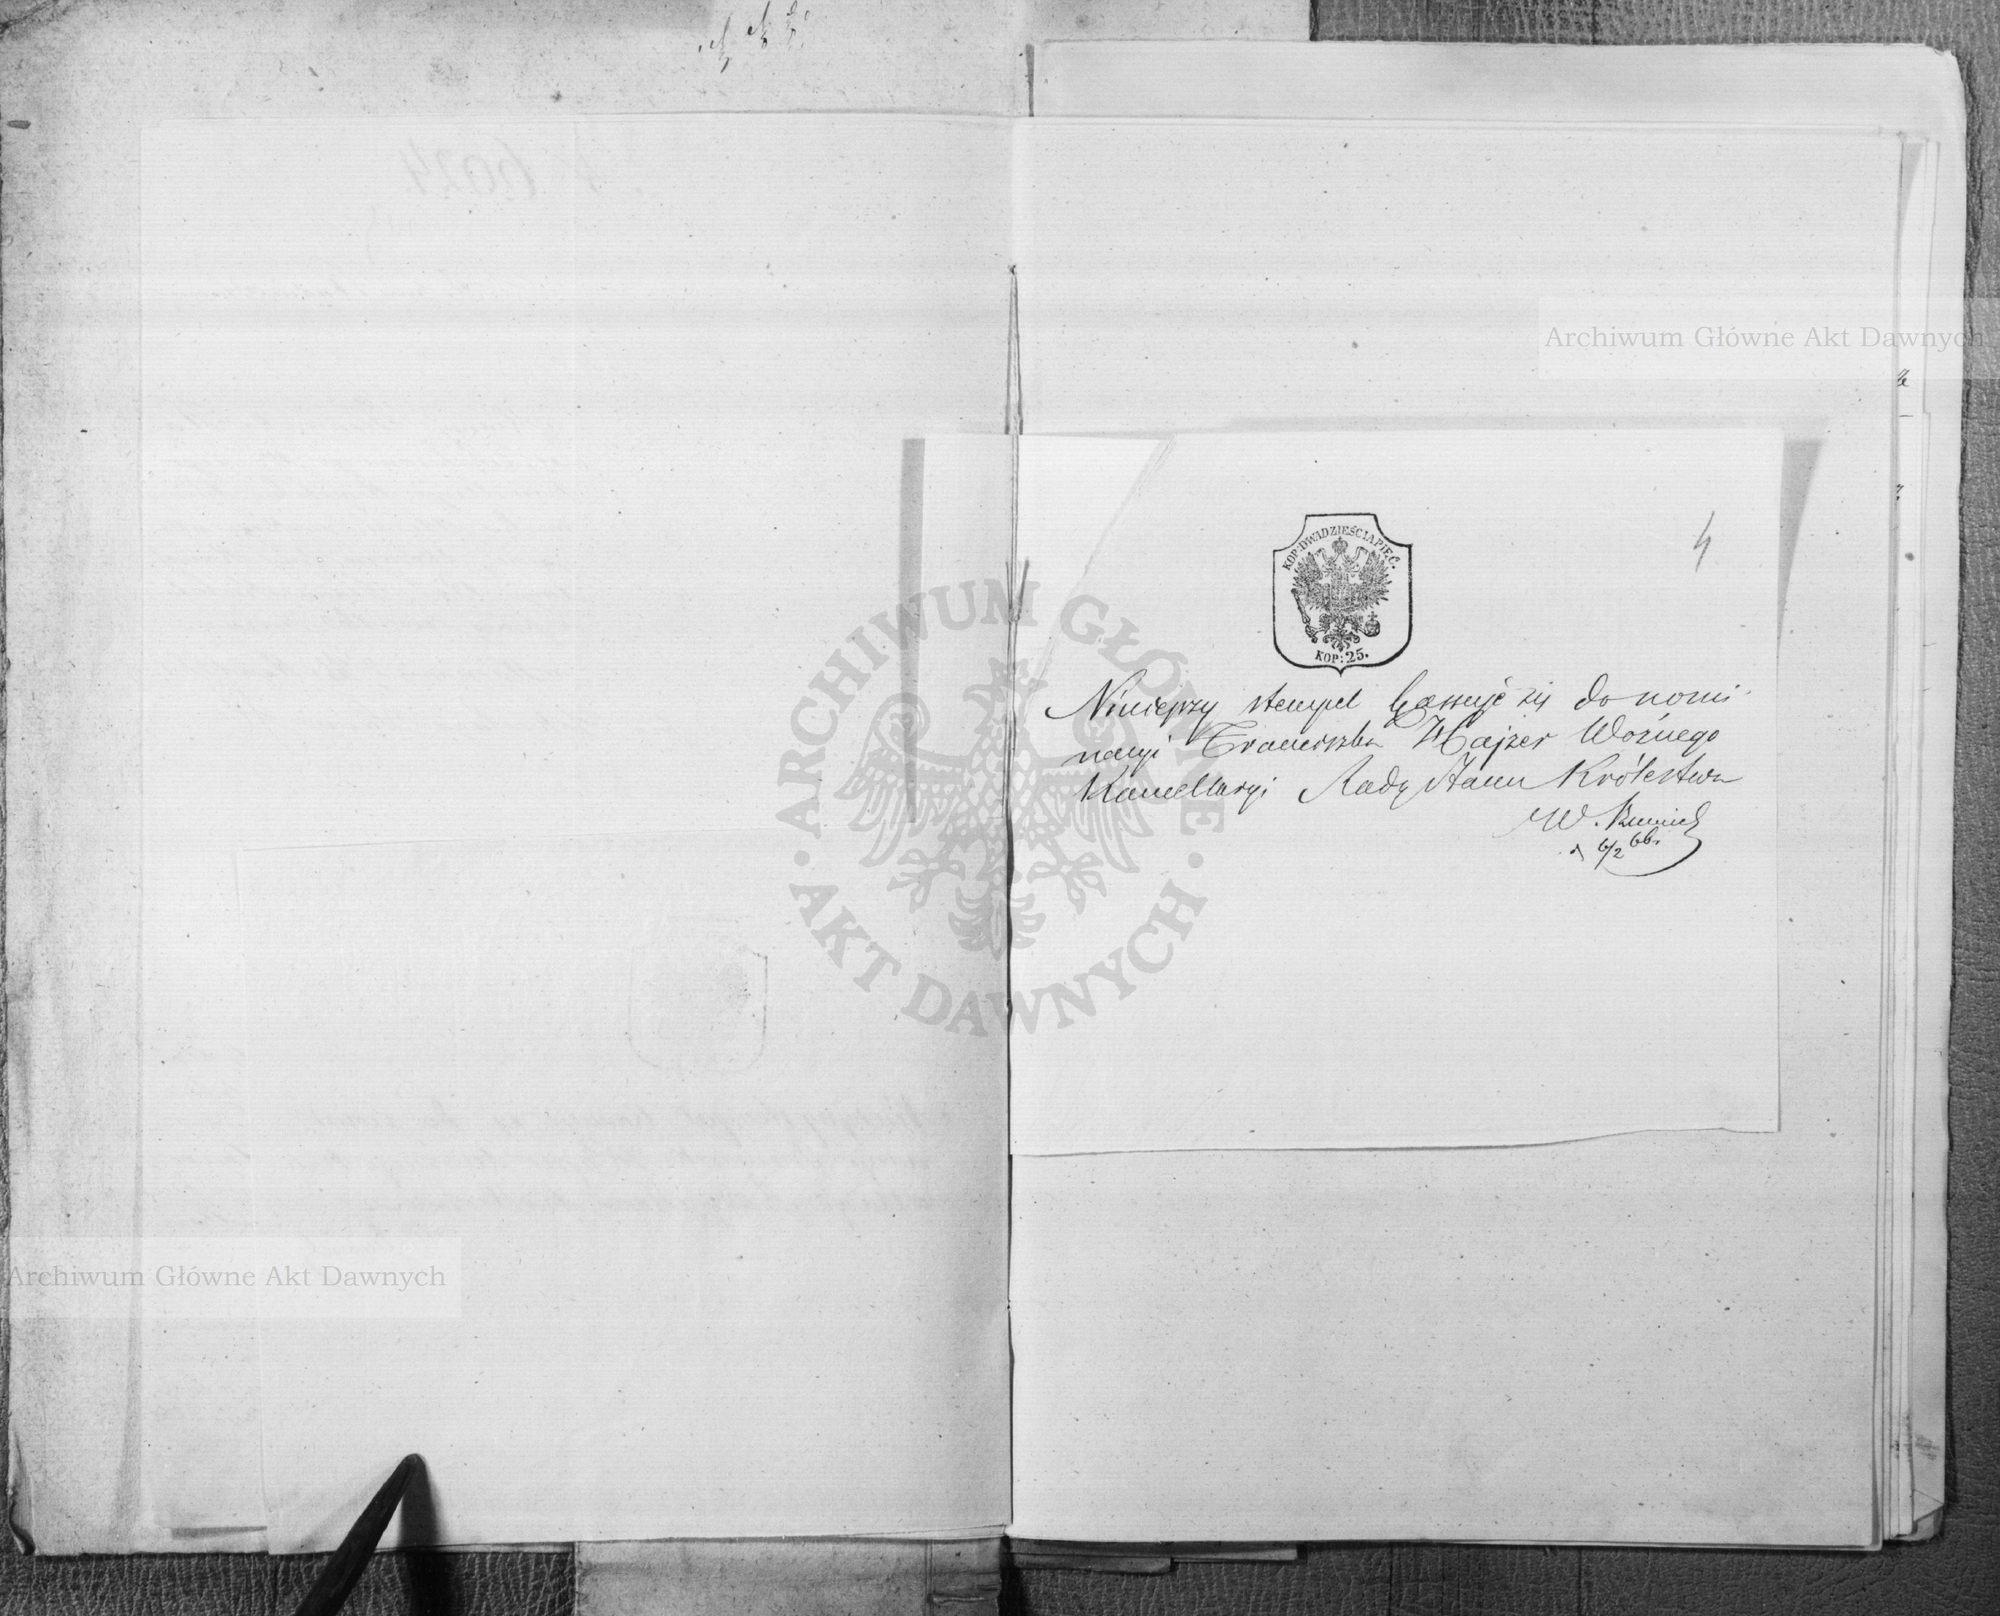 4
KOP: DWADZIEŚCIA PIĘĆ.
KOP: 25.
Niniejszy stempel kassuje się do nomi-
nacyi Franciszka Hajzer Woźnego
Kancellaryi Rady Stanu Królestwa
W.
d 6/2 66.
Archiwum Główne Akt Dawnych
ARCHIWUM GŁÓWNE · AKT DAWNYCH ·
Archiwum Główne Akt Dawnych